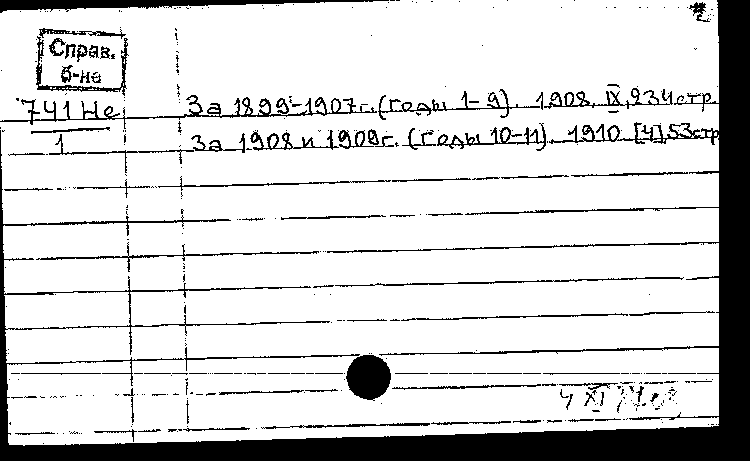 Справ.
б-на
741 Не
1
За 1899-1907г. (годы 1-9). 1908. IX, 234 стр.
За 1908 и 1909г. (годы 10-11). 1910 [4], 53 стр
4 XI